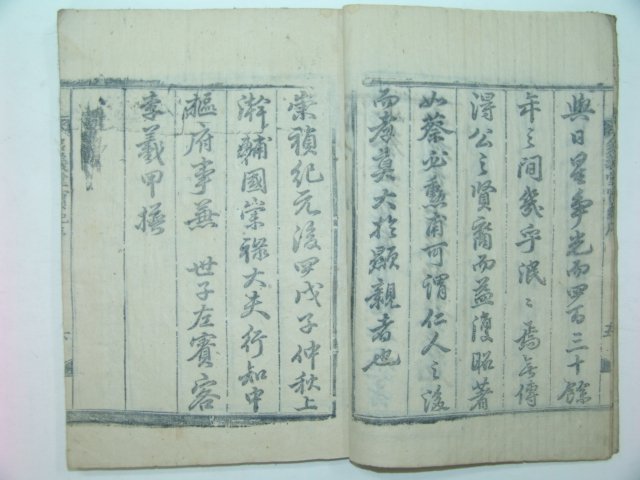 與日星爭光而四百三十餘
年之間幾乎泯〻焉無傳
得公之賢裔而益復昭著
如蔡必勳甫可謂仁人之後
而孝莫大於顯親者也
崇禎紀元後四戊子仲秋上
澣輔國崇祿大夫行知中
樞府事兼 世子左賓客
李羲甲撰